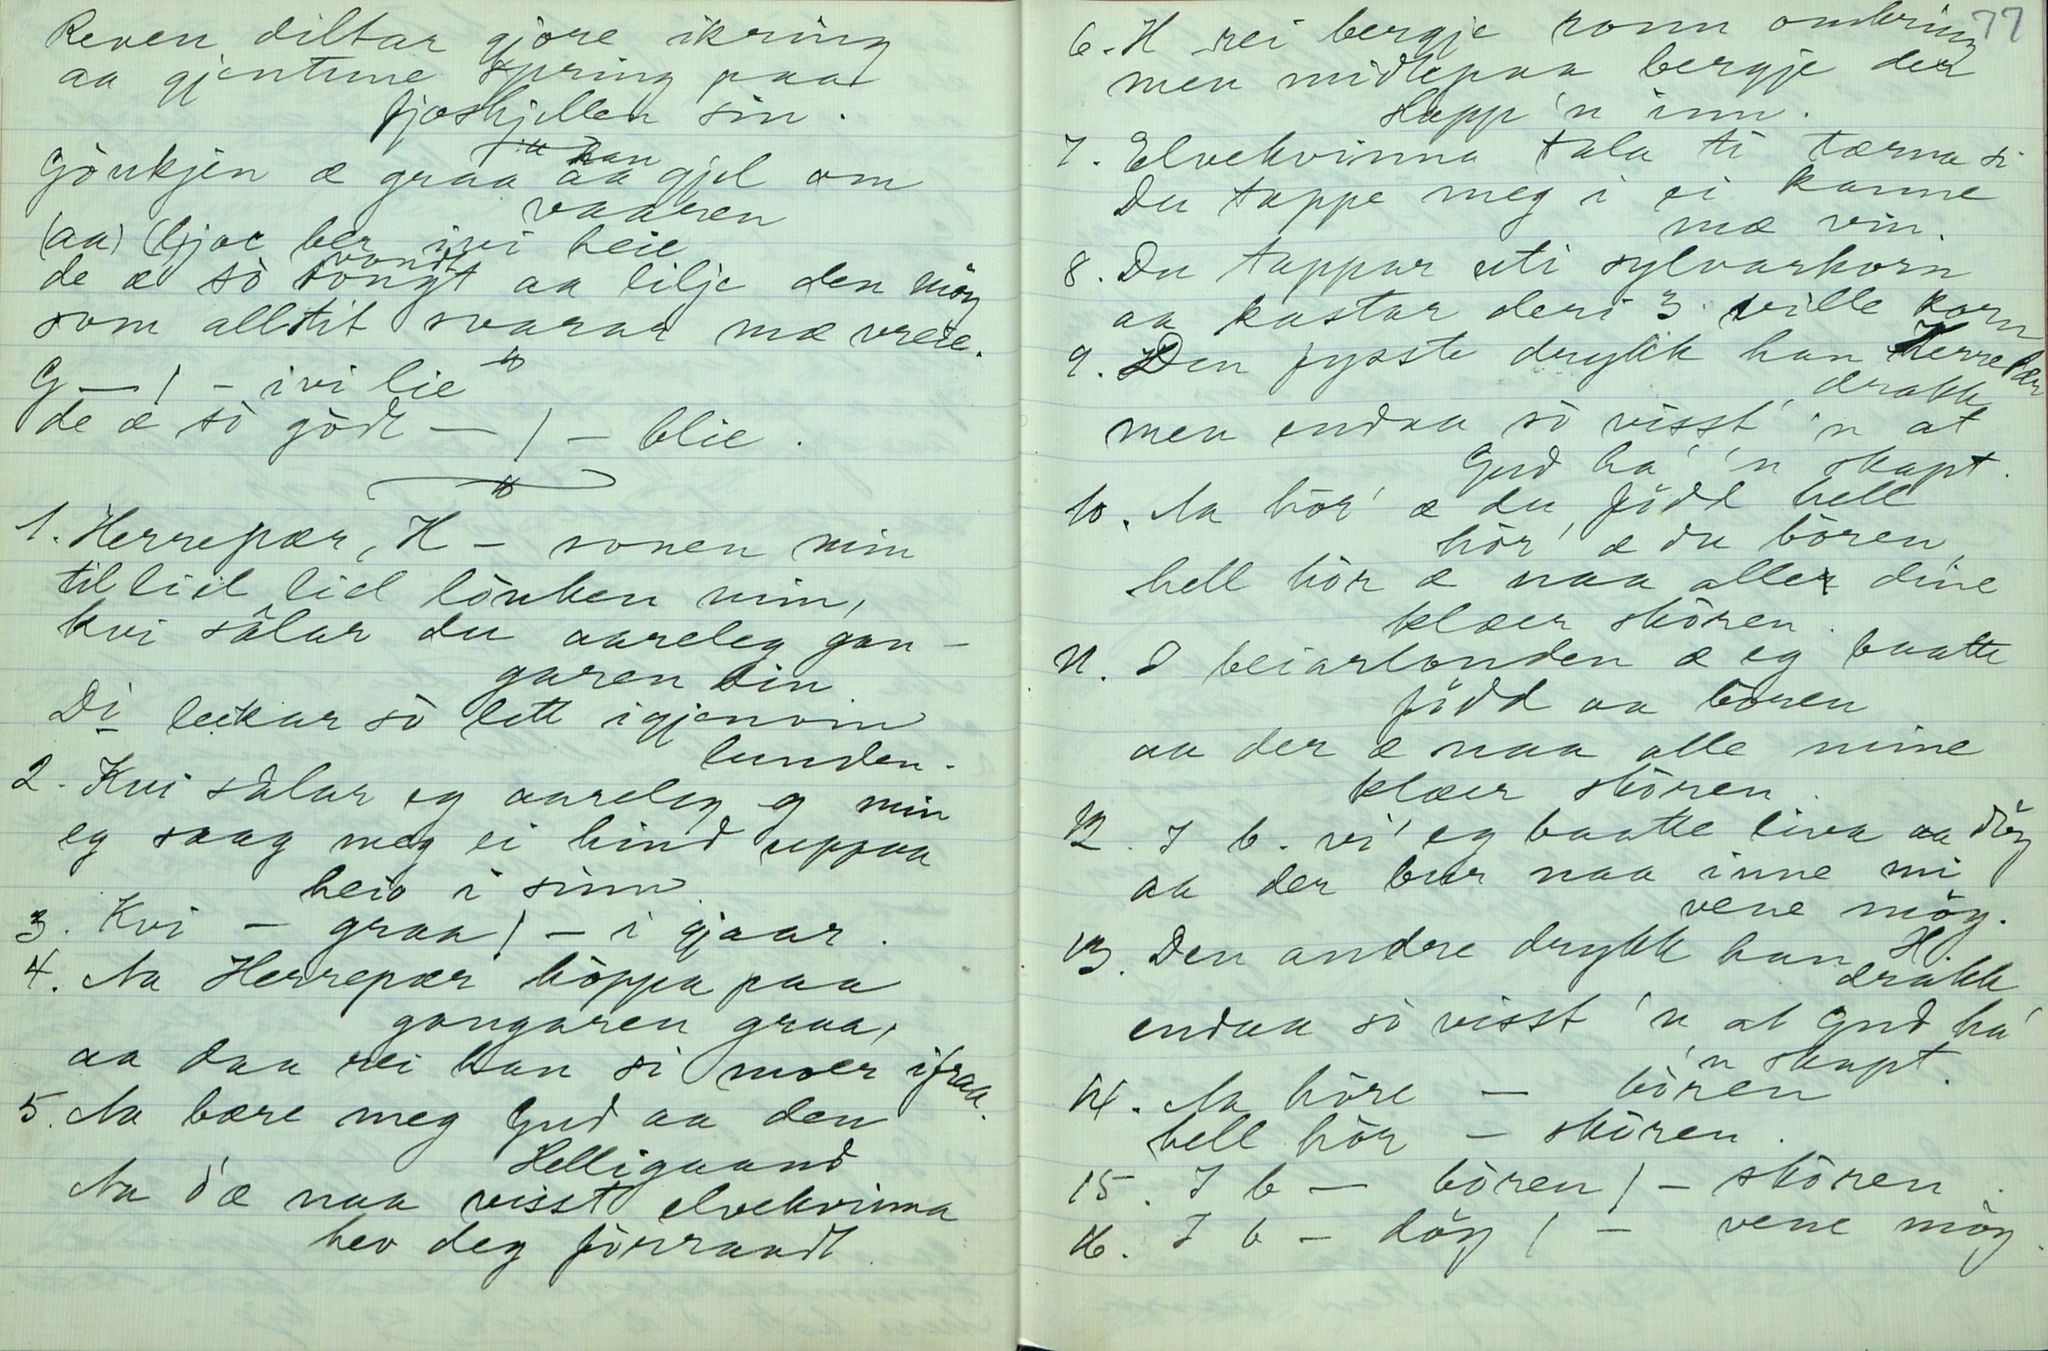 Reven diltar gjore ikring
aa gjentune spring paa
fjoshjellen sin.
han
Gjöukjen æ graa aa gjel om
vaaren
(aa) (h)joe ber ivi heie
vondt
de æ sò tongt aa lilje den möy
som alltit svarar mæ vreie.
G — / — ivi lie
de æ sò gödt — / — blie.
1. Herrepær, H – sonen min
til lid lid lönken min,
kvi sålar du aareleg gan-
garen din
Di leikar sò lett igjenom
lunden.
2. Kvi sålar eg aareleg g min
eg saag meg ei hind uppaa
heio i sinn
3. Kvi – graa / – i gjaar.
4. Aa Herrepær höppa paa
gangaren graa,
aa daa rei han si moer ifraa.
5. Aa bære meg Gud aa den
Helligaand
Aa d'æ naa visst elvekvinna
hev deg förraadt
77
6. H rei bergje ronn ombring
men midtepaa bergje der
slapp 'n inn.
7. Elvekvinna tala ti tærna si
Du tappe meg i ei kanne
mæ vin.
8. Du tappar uti sylvarhorn
aa kastar deri 3 ville korn
9. Den fysste drykk han Herrepær
drakk
men endaa sò visst 'n at
Gud ha' 'n skapt.
10. Aa hör' æ du född hell
hör' æ du bören
hell hör æ naa alle dine
klæer skören.
11. I beiarlonden æ eg baatte
född aa boren
aa der æ naa alle mine
klæer skören.
12. I b. vi' eg baatte liva aa döy
aa der bur naa inne mi
vene möy.
13. Den andre drykk han H.
drakk
endaa sò visst 'n at Gud ha'
'n skapt.
14. Aa höre — bören
hell hör – skören.
15. I b — bören / – skören.
16. I b – döy / – vene möy.